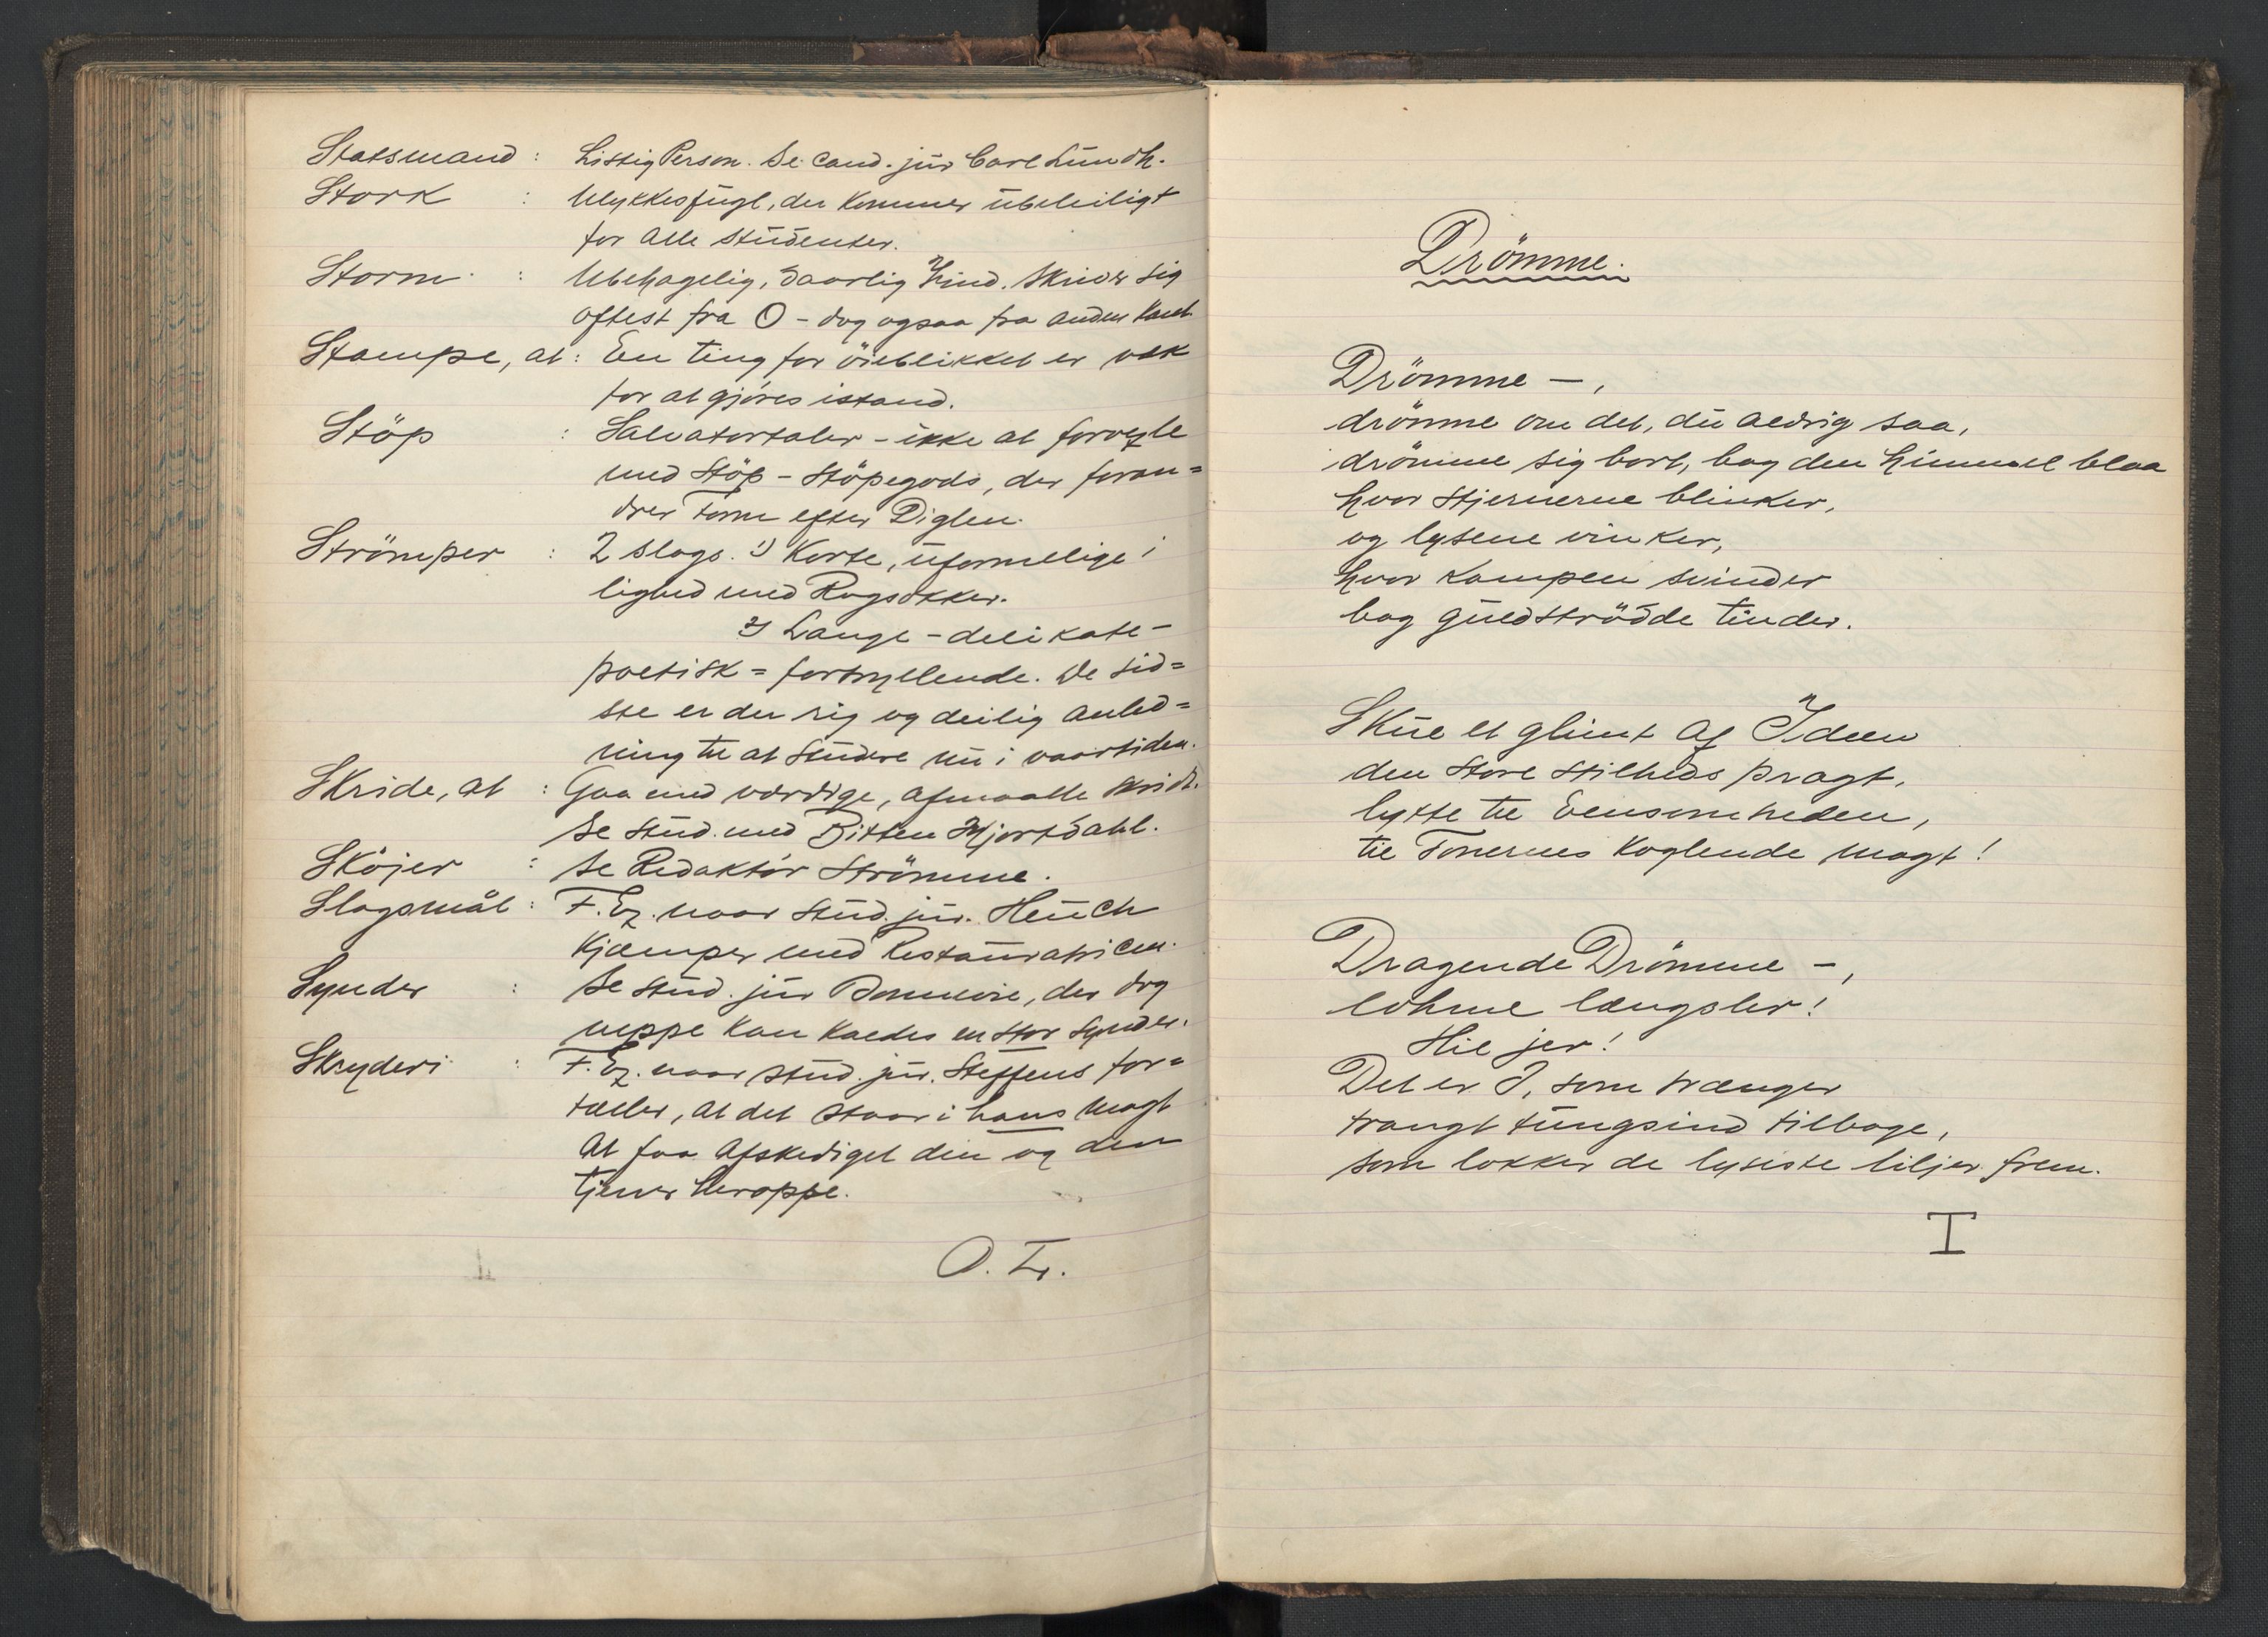 Statsmand : Listig Person. Se cand. jur Carl Lundh.
Stork : Ulykkesfugl, der kommer übeleiligt
for alle stüdenter.
Storm : Ubehagelig, daarlig Vind. Skriver sig
oftest fra O – dog ogsaa fra anden kant
Stampe, at : En ting for öieblikket er væk
for at gjöres istand.
Stöp : Salvatortaler – ikke at forvexle
med Stöp – Stöpegods, der foran=
drer Form efter Diglen.
Strömper : 2 slags. 1) Korte, uformelige i
lighed med Ragsokker.
2) Lange – delikate –
poetisk = fortryllende. De sid=
ste er der rig og deilig anled=
ning til at studere nu i vaartiden.
Skride, at : Gaa med værdige, afmaalte skridt.
Se stud. med Bitten Hjortdahl.
Sköjer : Se Redaktör Strömme.
Slagsmål : F. Ex. naar stud. jur. Heuch
kjæmper med Restauratricen.
Synder : Se stud. jur , der dog
neppe kan kaldes en stor synder.
Skryderi : F. Ex. naar stud. jur. Steffens for=
tæller, at det staar i hans magt
at faa afskediget den og den
tjener heroppe.
O. Tr.
Drömme.
Drömme –,
drömme om det, du aldrig saa,
drömme sig bort, bag den himmel blaa
hvor stjernerne blinker,
og lysene vinker,
hvor kampen svinder
bag guldströdde tinder.
Skue et glimt af Ideen
den store stilheds pragt,
lytte til Eensomheden,
til Tonernes koglende magt!
Dragende Drömme –,
lohme længsler!
Hil jer!
Det er I, som trænger
trangt tungsind tilbage,
som lokker de lyseste liljer frem.
I